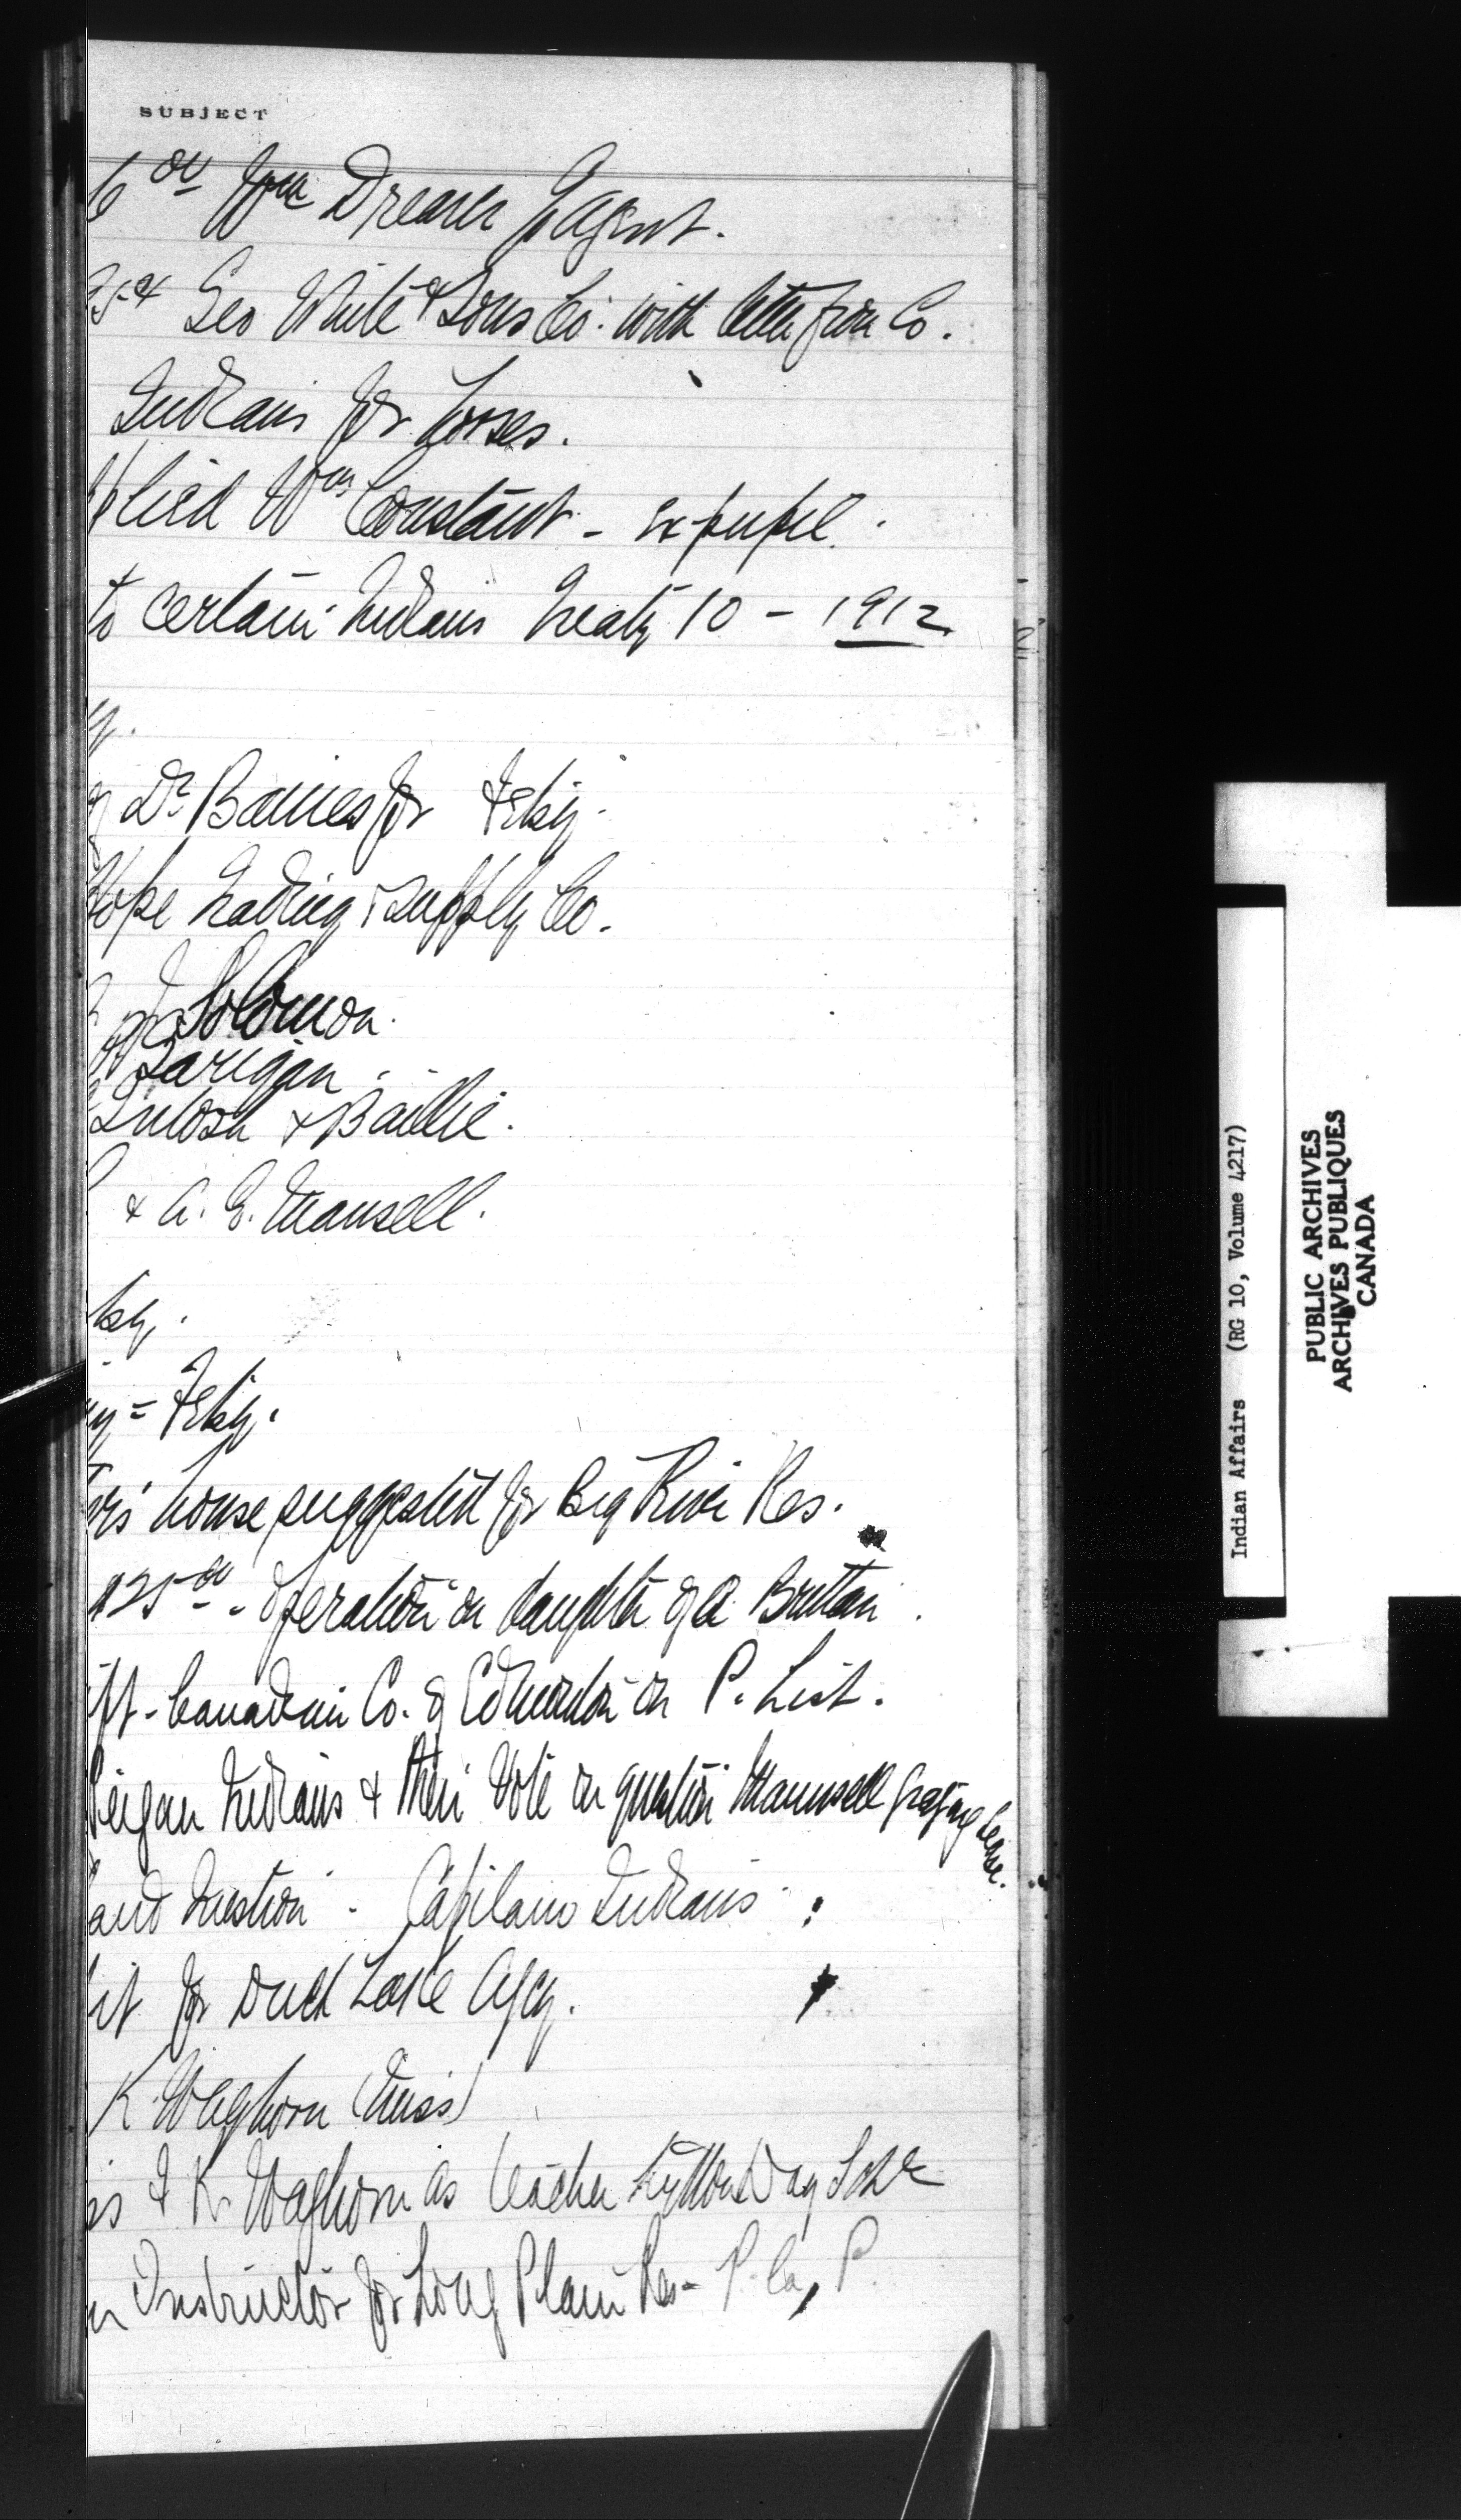 SUBJECT
Wm Agent.
Geo White & Sons Co. with letter from Co.
Indians for horses.
Wm Constant - ex pupil.
to certain Indians Treaty 10 - 1912
y.
Dr Baines for Feby.
Hope Trading & Supply Co.
Solomon.
Intosh & Baillie.
& A. E. Maunsell.
by.
y = Feby.
house suggested for Big River Res.
$25 00 - Operation on daughter of A Brittain.
ft - Canadian Co. of Edmonton on P. List.
Peigan Indians & their Vote on question Maunsell grazing lease.
and Question - Capilano Indians
it for Duck Lake Agcy.
K. Waghorn (Miss)
ss I K. Waghorn as teacher Day Schl
Instructor for Long Plain Res - P. la P.
Indian Affairs (RG 10, Volume 4217)
PUBLIC ARCHIVES
ARCHIVES PUBLIQUES
CANADA